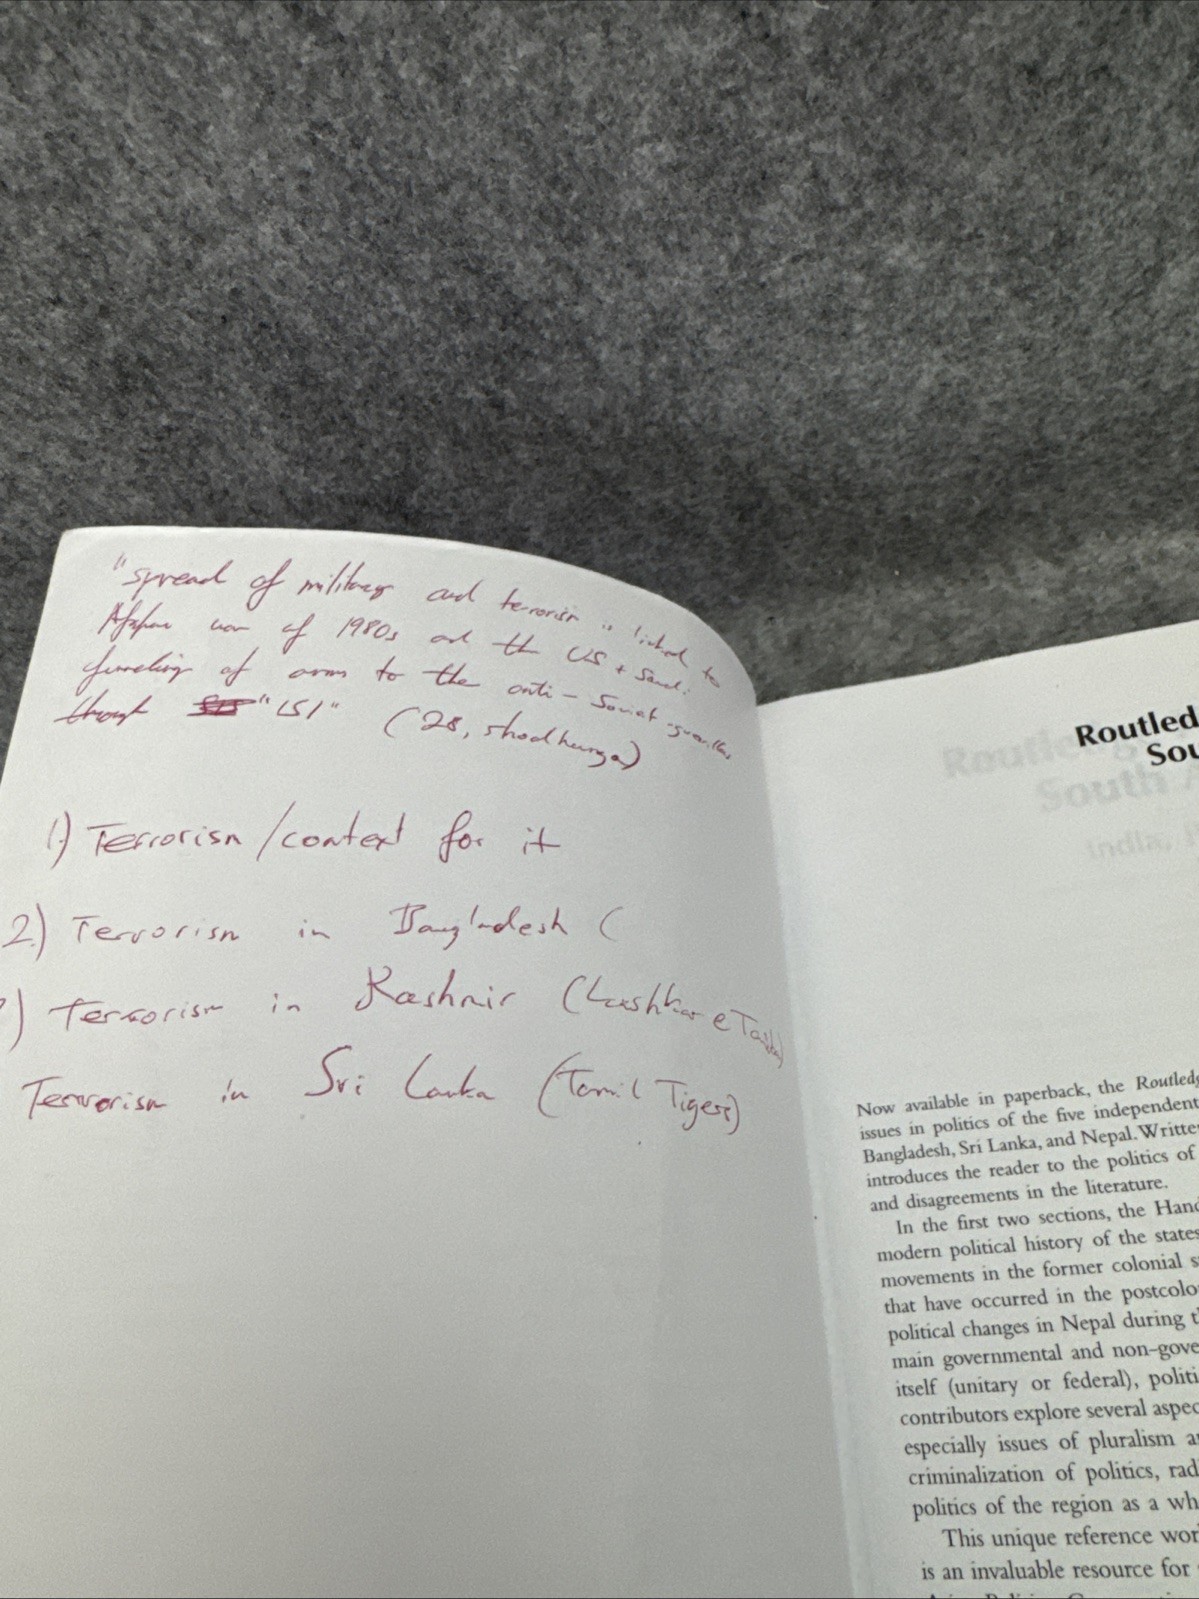 "spread of military and terrorism is linked to
Afghan war of 1980s and the US + Saudi
funding of arms to the anti-Soviet guerillas
through "ISI" (28, shodhganga)
1) Terrorism/context for it
2.) Terrorism in Bangladesh (
) Terrorism in Kashmir (Lashkar e Taiba)
Terrorism in Sri Lanka (Tamil Tigers)
Routled
Sou
Routledg
South A
India,
Now available in paperback, the Routledg
issues in politics of the five independent
Bangladesh, Sri Lanka, and Nepal. Writte
introduces the reader to the politics of
and disagreements in the literature.
In the first two sections, the Hand
modern political history of the states
movements in the former colonial s
that have occurred in the postcolo
political changes in Nepal during t
main governmental and non-gove
itself (unitary or federal), politi
contributors explore several aspec
especially issues of pluralism a
criminalization of politics, rad
politics of the region as a wh
This unique reference wor
is an invaluable resource for